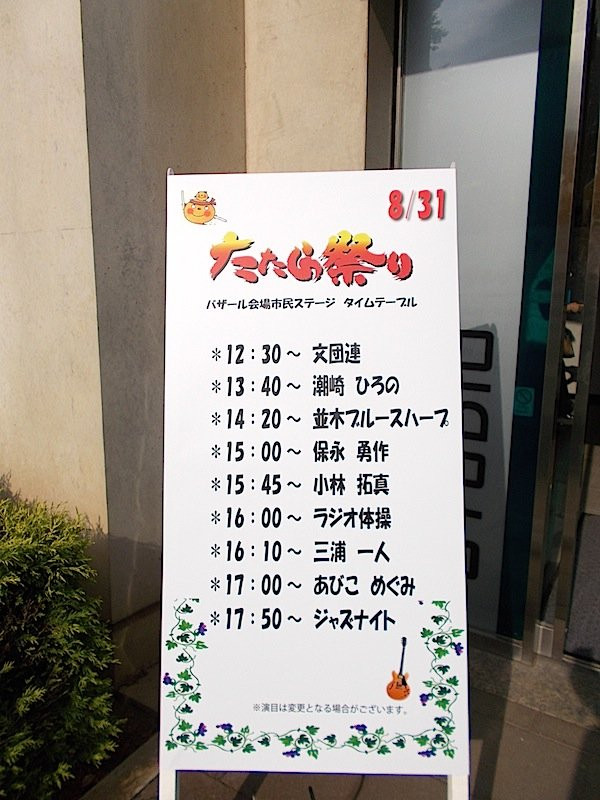 8/31
たたら祭り
バザール会場市民ステージ タイムテーブル
*12:30～ 文団連
*13:40～ 潮崎 ひろの
*14:20～ 並木ブルースハープ
*15:00～ 保永 勇作
*15:45～ 小林 拓真
*16:00～ ラジオ体操
*16:10～ 三浦 一人
*17:00～ あびこ めぐみ
*17:50～ ジャズナイト
※演目は変更となる場合がございます。
STUDIO